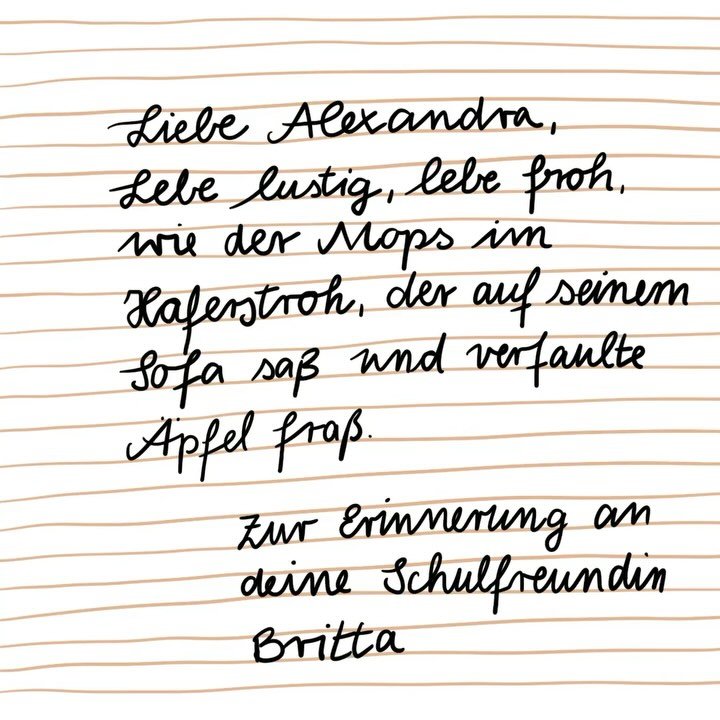 Liebe Alexandra,
Lebe lustig, lebe froh,
wie der Mops im
Haferstroh, der auf seinem
Sofa saß und verfaulte
Äpfel fraß.
Zur Erinnerung an
deine Schulfreundin
Britta